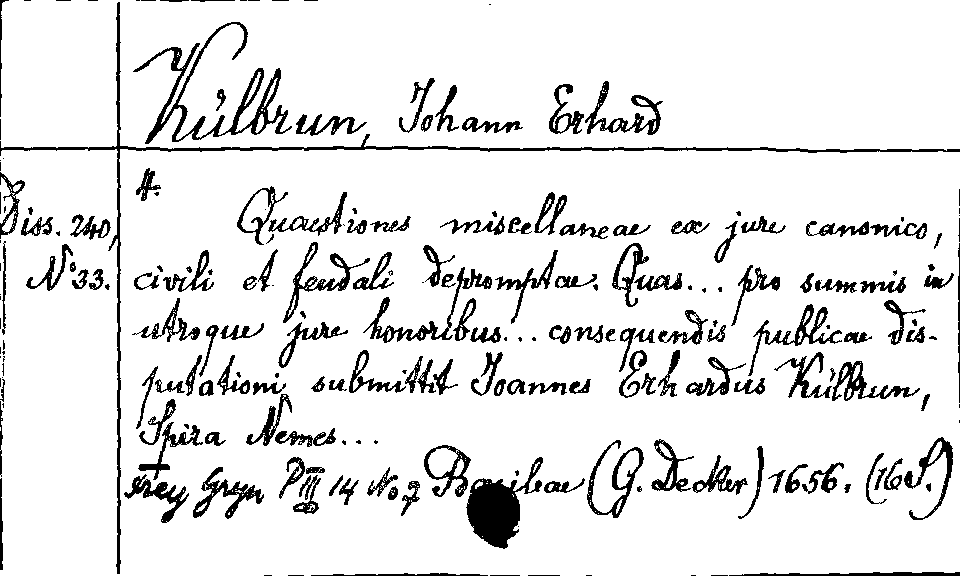 Külbrun, Johann Erhard
4.
Diss. 240,
No 33.
Quaestiones miscellaneae ex jure canonico,
civili et feudali depromptae. Quas... pro summis in
utroque jure honoribus... consequendis publicae dis-
putationi submittit Joannes Erhardus Külbrun,
Spira Nemes...
Frey Gryn P III 14 No 7 Basileae (G. Decker) 1656. (16 S.)